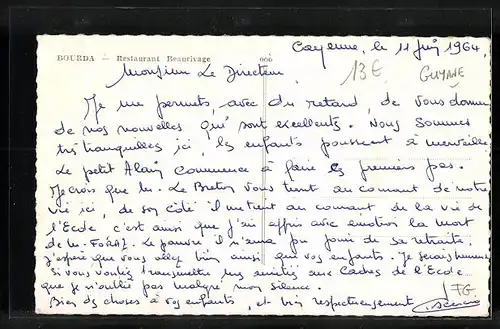 Cayenne, le 11 Juin 1964.
BOURDA — Restaurant Beaurivage
Monsieur Le Directeur,
13€
GUYANE
Je me permets, avec du retard, de vous donner
de nos nouvelles qui sont excellentes. Nous sommes
très tranquilles ici, les enfants poussent à merveille
Le petit Alain commence à faire ses premiers pas.
Je crois que M. Le Breton vous tient au courant de notre
vie ici, de son côté il me tient au courant de la vie de
l'Ecole, c'est ainsi que j'ai appris avec émotion la mort
de M. Le pauvre il n'aura pu jouir de sa retraite.
J'espère que vous allez bien ainsi que vos enfants. Je serais heureux
si vous vouliez transmettre mes amitiés aux Cadres de l'Ecole
que je n'oublie pas malgré mon silence.
Bien des choses à vos enfants, et bien respectueusement
FG